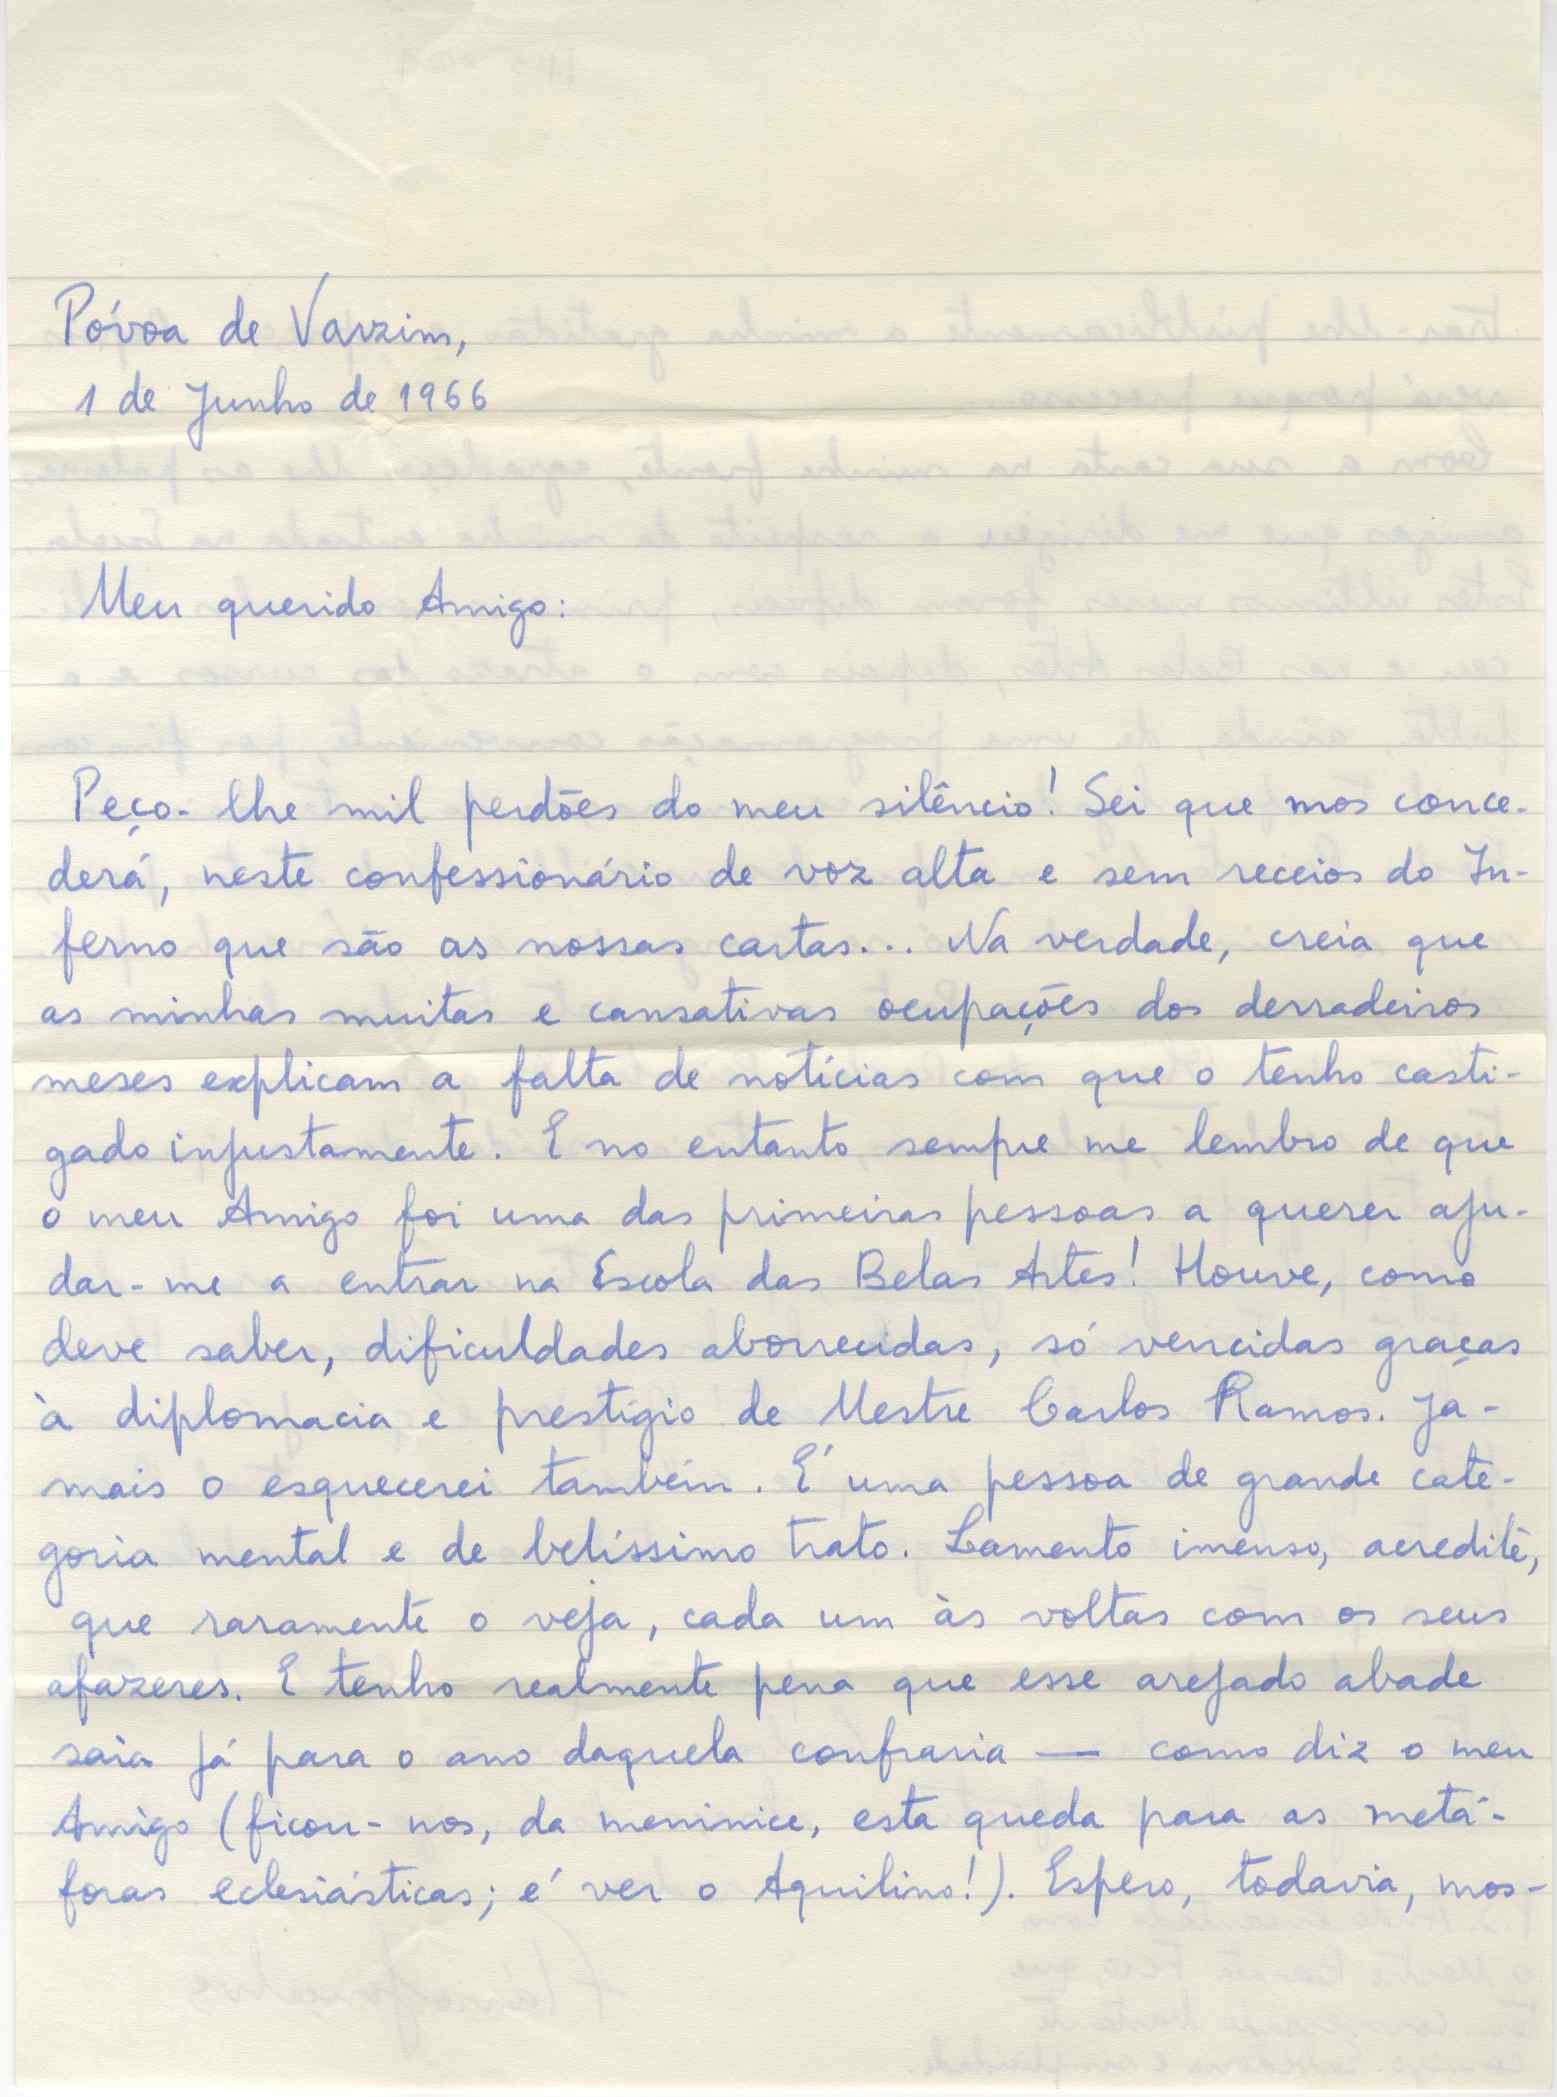 Póvoa de Varzim,
1 de Junho de 1966
Meu querido Amigo:
Peço-lhe mil perdões do meu silêncio! Sei que mos conce-
derá, neste confessionário de voz alta e sem receios do In-
ferno que são as nossas cartas... Na verdade, creia que
as minhas muitas e cansativas ocupações dos derradeiros
meses explicam a falta de notícias com que o tenho casti-
gado injustamente. E no entanto sempre me lembro de que
o meu Amigo foi uma das primeiras pessoas a querer aju-
dar-me a entrar na Escola das Belas Artes! Houve, como
deve saber, dificuldades aborrecidas, só vencidas graças
à diplomacia e prestígio de Mestre Carlos Ramos. Ja-
mais o esquecerei também. É uma pessoa de grande cate-
goria mental e de belíssimo trato. Lamento imenso, acredite,
que raramente o veja, cada um às voltas com os seus
afazeres. E tenho realmente pena que esse arejado abade
saia já para o ano daquela confraria — como diz o meu
Amigo (ficou-nos, da meninice, esta queda para as metá-
foras eclesiásticas; é ver o Aquilino!). Espero, todavia, mos-